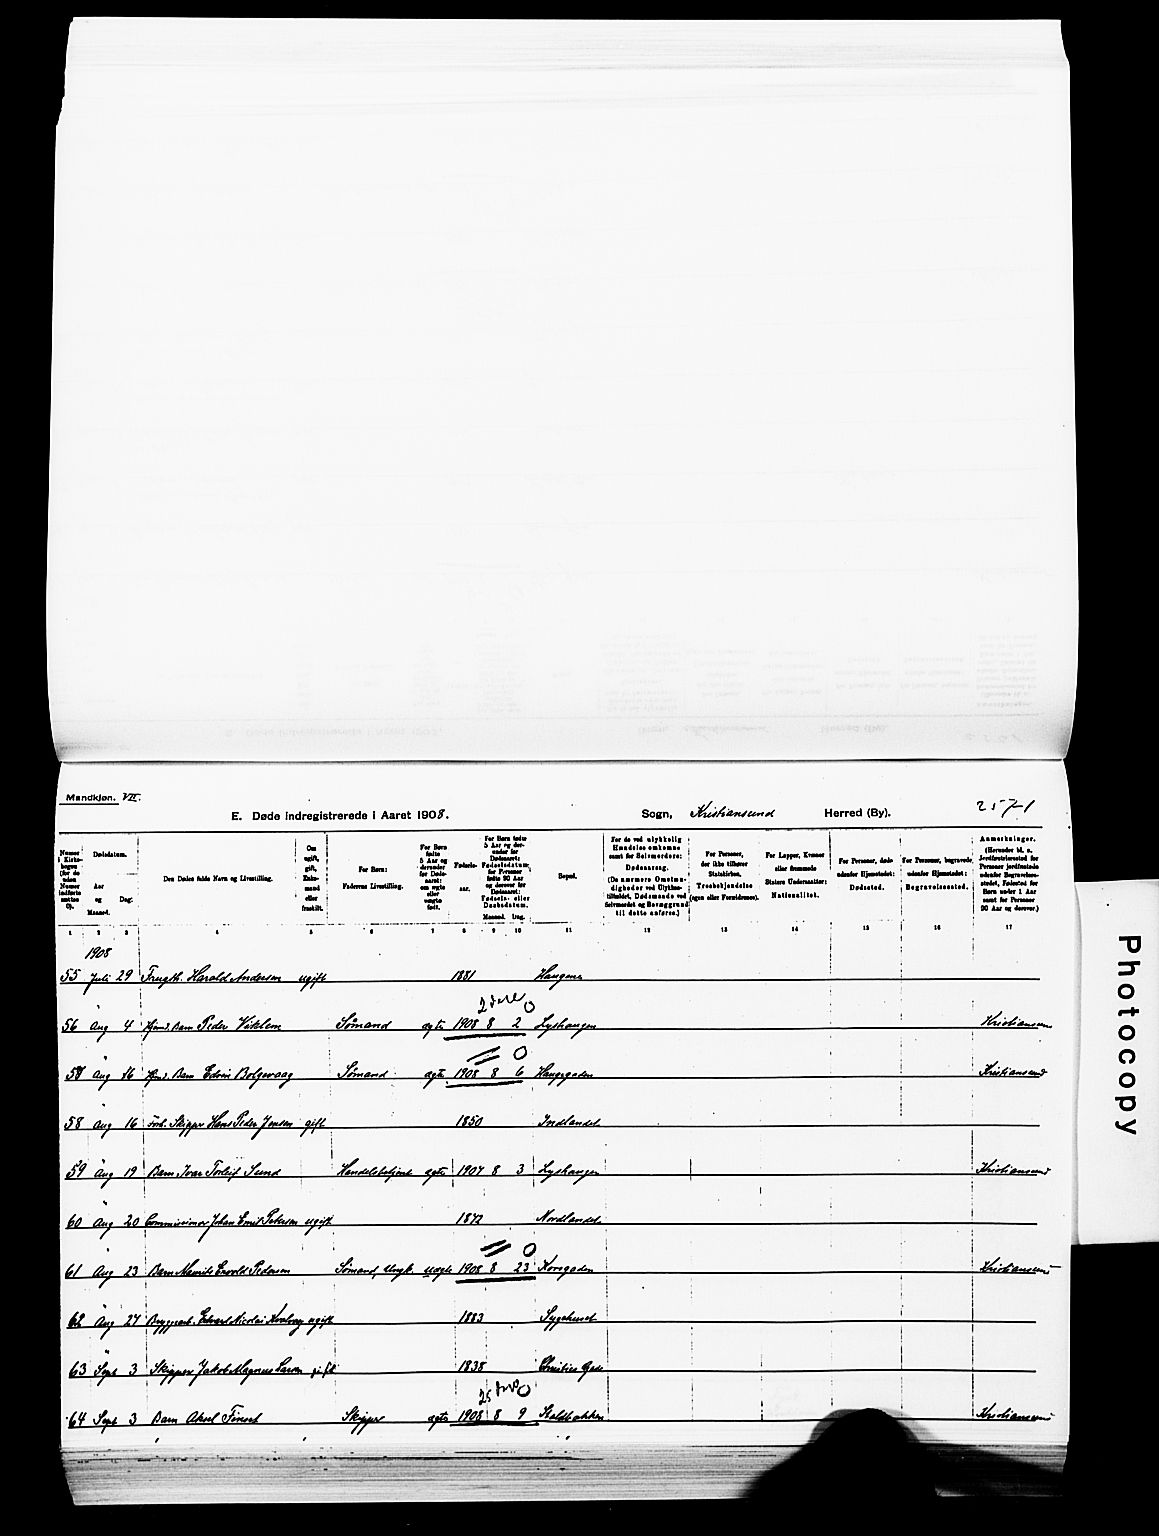 Mandkjøn. VII.
E. Døde indregistrerede i Aaret 1908. Sogn, Kristiansund Herred (By). 257-1
Numer i Kirkebogen (for de uden Numer indførte sættes 0).
Dødsdatum.
Aar og Maaned. Dag.
Den Dødes fulde Navn og Livsstilling.
Om ugift, gift, Enkemand eller fraskilt.
For Børn:
Faderens Livsstilling.
For Børn fødte 5 Aar og derunder før Dødsaaret: om ægte eller uægte født.
Fødselsaar.
For Børn fødte 5 Aar og derunder før Dødsaaret: Fødselsdatum; for Personer fødte 90 Aar og derover før Dødsaaret: Fødsels- eller Daabsdatum.
Maaned. Dag.
Bopæl.
For de ved ulykkelig Hændelse omkomne samt for Selvmordere:
Dødsaarsag.
(De nærmere Omstændigheder ved Ulykkestilfældet, Dødsmaade ved Selvmordet og Bevæggrund til dette anføres.)
For Personer, der ikke tilhører Statskirken,
Trosbekjendelse
(egen eller Forældrenes).
For Lapper, Kvæner eller fremmede Staters Undersaatter:
Nationalitet.
For Personer, døde udenfor Hjemstedet:
Dødssted.
For Personer, begravede udenfor Hjemstedet:
Begravelsessted.
Anmerkninger.
(Herunder bl. a. Jordfæstelsessted for Personer jordfæstede udenfor Begravelsesstedet, Fødested for Børn under 1 Aar samt for Personer 90 Aar og derover.)
1 2 3 4 5 6 7 8 9 10 11 12 13 14 15 16 17
1908
55 Juli 29 Harald Andersen ugift 1881 Haugene
2 O
56 Aug 4 Barn Peder Viklem Sømand ægte 1908 8 2 Lyshaugen Kristiansund
" O
57 Aug 16 Barn Edvin Bolgevaag Sømand ægte 1908 8 6 Haugegaden Kristiansund
58 Aug 16 Skipper Hans Peder Jensen gift 1850 Indlandet
59 Aug 19 Barn Ivar Torleif Sund Handelsbetjent ægte 1907 8 3 Lyshaugen Kristiansund
60 Aug 20 Commissionær Johan Emil Petersen ugift 1872 Nordlandet
" O
61 Aug 23 Barn Pedersen Sømand, Ungk. uægte 1908 8 23 Korsgaden Kristiansund
62 Aug 27 Bryggearb. Edvard Nicolai ugift 1883 Sygehuset
63 Sept 3 Skipper Jakob Magnus Larsen gift 1838 Christies Gade
25 O
64 Sept 3 Barn Aksel Skipper ægte 1908 8 9 Kristiansund
Photocopy